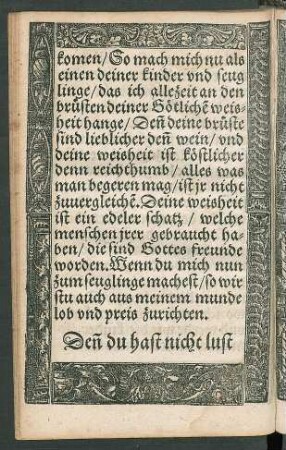 komen/So mach mich nu als
einen deiner kinder vnd seug
linge/das ich allezeit an den
brüsten deiner Götlichẽ weis-
heit hange/Deñ deine brüste
sind lieblicher deñ wein/vnd
deine weisheit ist köstlicher
denn reichthumb/alles was
man begeren mag/ist jr nicht
zuuergleichẽ. Deine weisheit
ist ein edeler schatz/welche
menschen jrer gebraucht ha-
ben/die sind Gottes freunde
worden. Wenn du mich nun
zum seuglinge machest/so wir
stu auch aus meinem munde
lob vnd preis zurichten.
Deñ du hast nicht lust